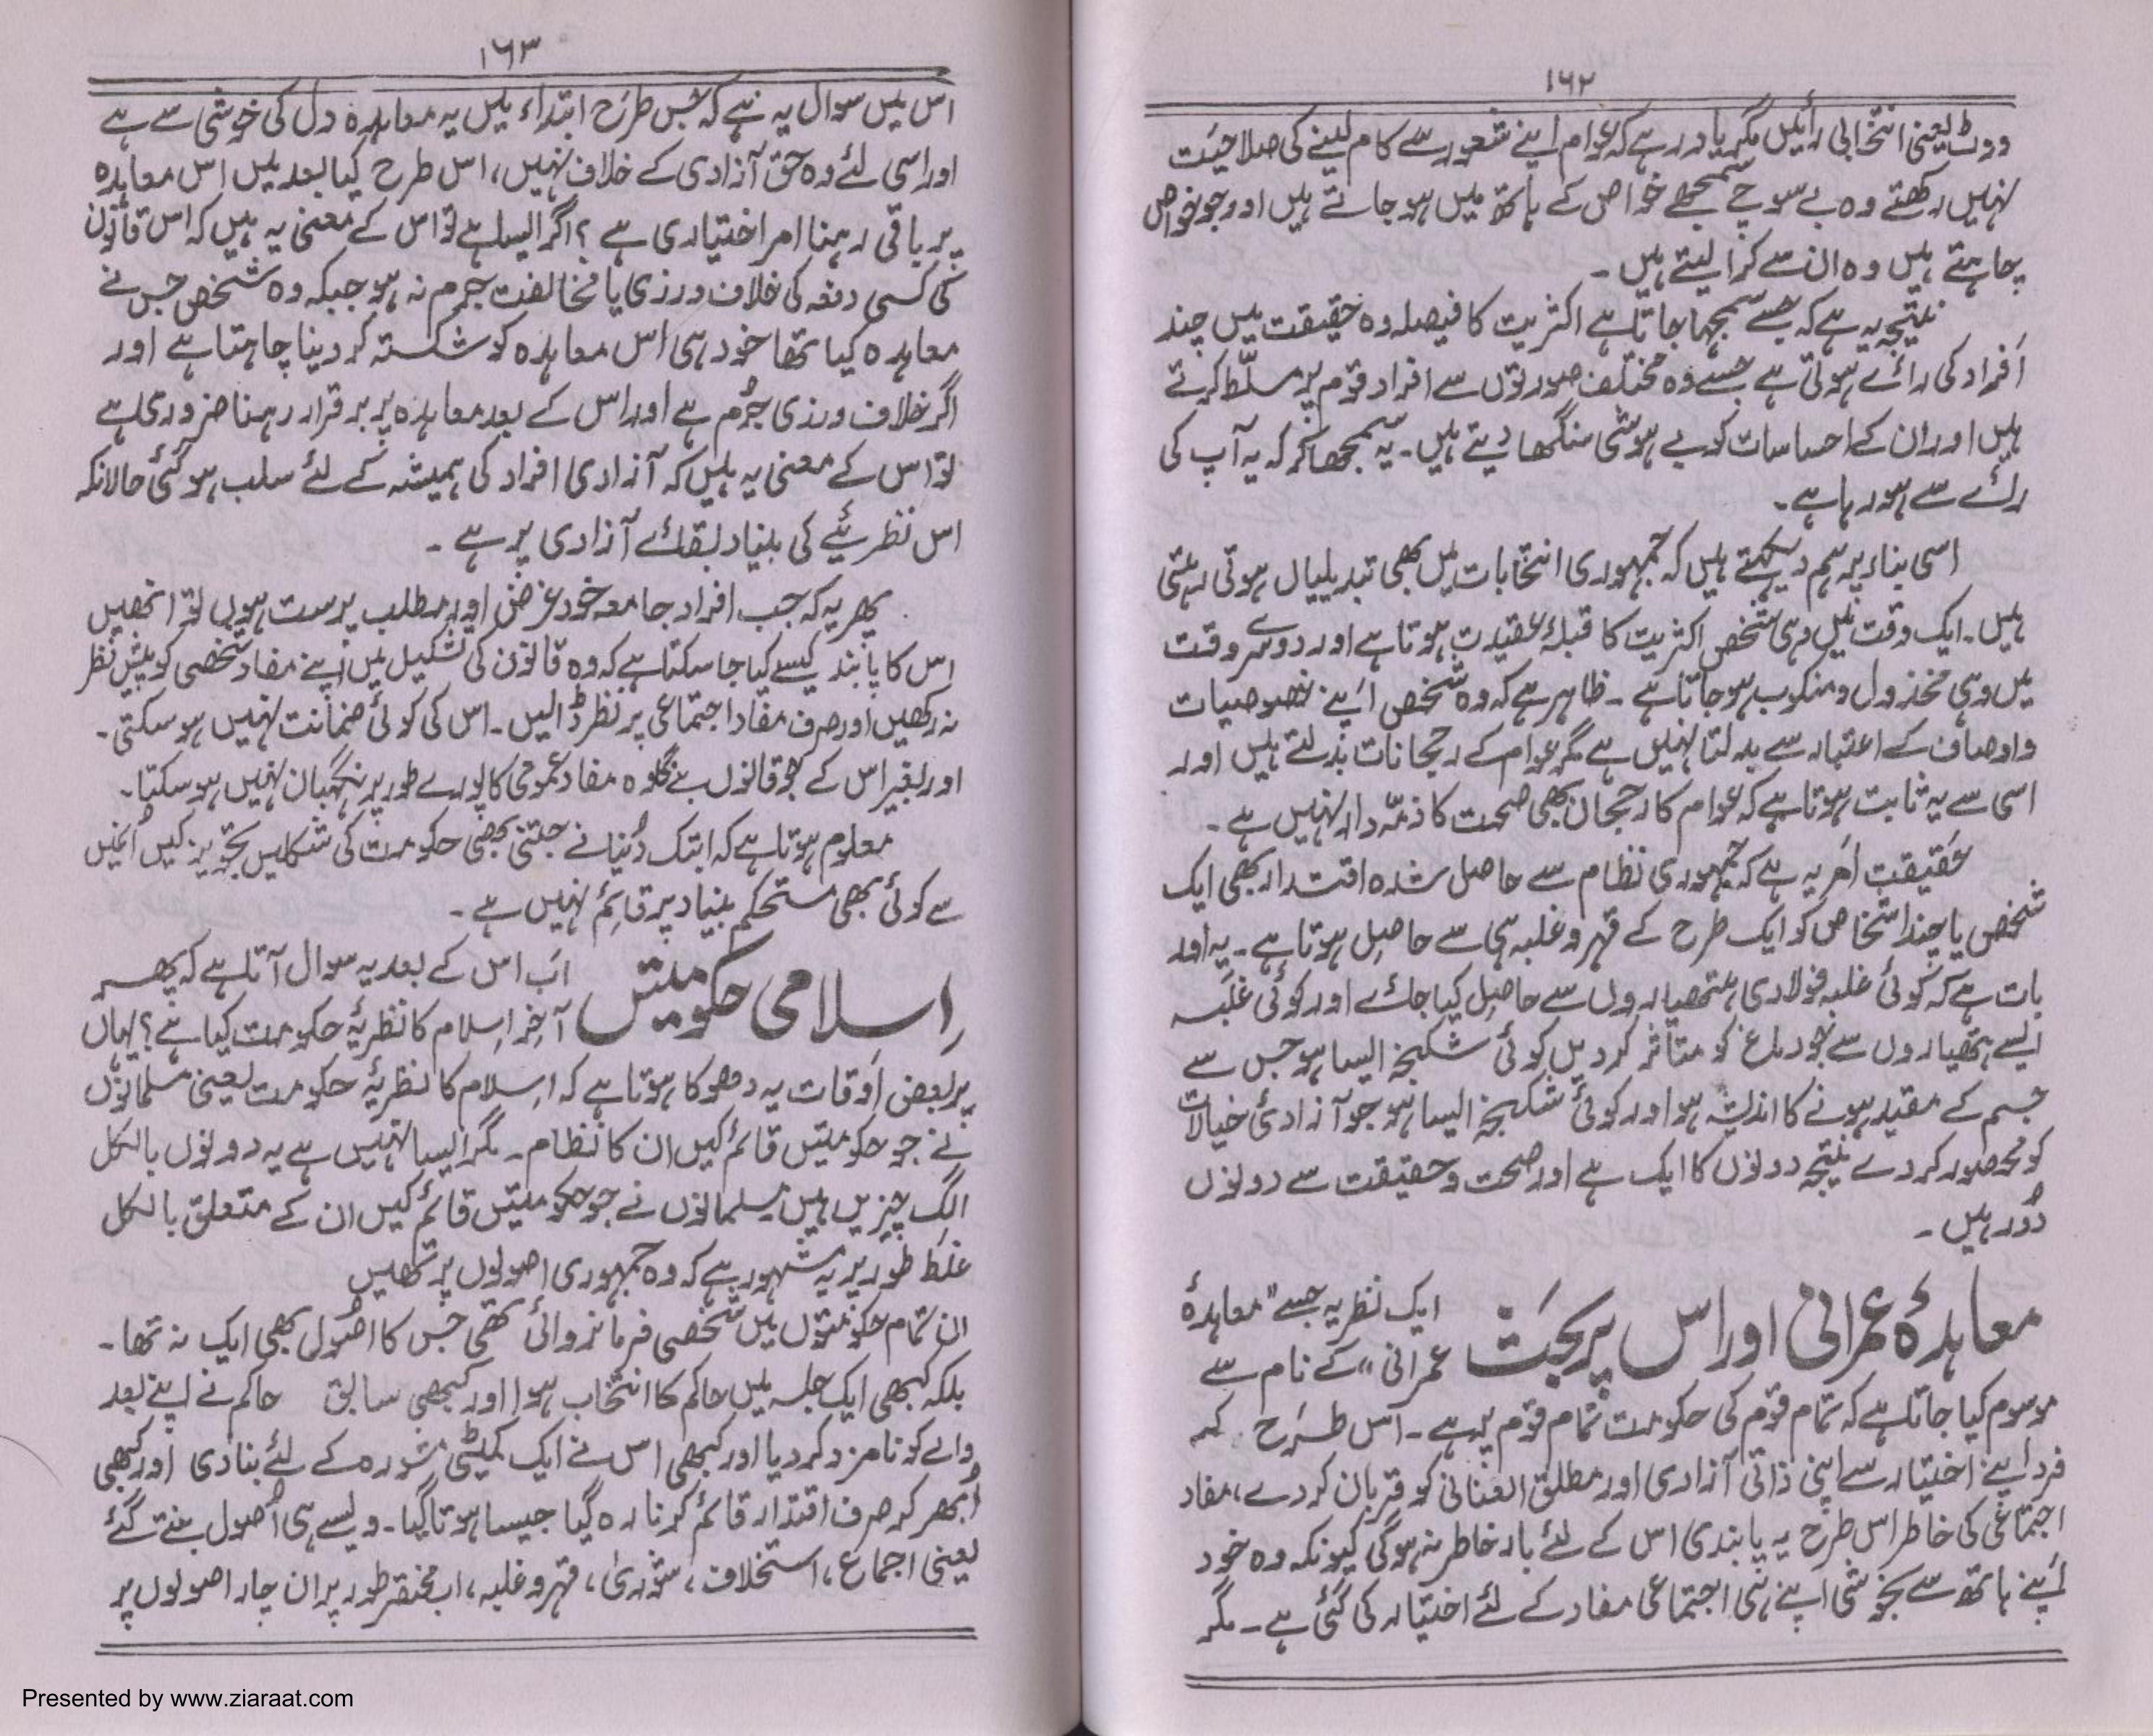 ۱۶۲
ووٹ یعنی انتخابی رائیں مگر یاد رہے کہ عوام اپنے شعور سے کام لینے کی صلاحیت
نہیں رکھتے وہ بے سوچے سمجھے خواص کے ہاتھ میں ہو جاتے ہیں اور جو خواص
چاہتے ہیں وہ ان سے کرا لیتے ہیں ۔
نتیجہ یہ ہے کہ جسے سمجھا جاتا ہے اکثریت کا فیصلہ وہ حقیقت میں چند
افراد کی رائے ہوتی ہے جسے وہ مختلف صورتوں سے افراد قوم پر مسلّط کرتے
ہیں اور ان کے احساسات کو بے ہوشی سنگھا دیتے ہیں ۔ یہ سمجھا کر کہ یہ آپ کی
رائے سے ہو رہا ہے ۔
اسی بناء پر ہم دیکھتے ہیں کہ جمہوری انتخابات میں بھی تبدیلیاں ہوتی رہتی
ہیں ۔ ایک وقت میں وہی شخص اکثریت کا قبلۂ عقیدت ہوتا ہے اور دوسرے وقت
میں وہی مخذول و منکوب ہو جاتا ہے ۔ ظاہر ہے کہ وہ شخص اپنے خصوصیات
و اوصاف کے اعتبار سے بدلتا نہیں ہے مگر عوام کے رجحانات بدلتے ہیں اور
اسی سے یہ ثابت ہوتا ہے کہ عوام کا رجحان بھی صحت کا ذمّہ دار نہیں ہے ۔
حقیقت امر یہ ہے کہ جمہوری نظام سے حاصل شدہ اقتدار بھی ایک
شخص یا چند اشخاص کو ایک طرح کے قہر و غلبہ ہی سے حاصل ہوتا ہے ۔ یہ اور
بات ہے کہ کوئی غلبہ فولادی ہتھیاروں سے حاصل کیا جائے اور کوئی غلبہ
ایسے ہتھیاروں سے جو دماغ کو متاثر کر دیں کوئی شکنجہ ایسا ہو جس سے
جسم کے مقید ہونے کا اندیشہ ہو اور کوئی شکنجہ ایسا ہو جو آزادئ خیالات
کو محصور کر دے نتیجہ دونوں کا ایک ہے اور صحت و حقیقت سے دونوں
دُور ہیں ۔
معاہدۂ عمرانی اور اس پر بحث
ایک نظریہ جسے "معاہدۂ
عمرانی" کے نام سے
موسوم کیا جاتا ہے کہ تمام قوم کی حکومت تمام قوم پر ہے ۔ اس طرح کہ
فرد اپنے اختیار سے اپنی ذاتی آزادی اور مطلق العنانی کو قربان کر دے، مفاد
اجتماعی کی خاطر اس طرح یہ پابندی اس کے لئے بار خاطر نہ ہوگی کیونکہ وہ خود
اپنے ہاتھ سے بخوشی اپنے ہی اجتماعی مفاد کے لئے اختیار کی گئی ہے ۔ مگر
۱۶۳
اس میں سوال یہ ہے کہ جس طرح ابتداء میں یہ معاہدہ دل کی خوشی سے ہے
اور اسی لئے وہ حق آزادی کے خلاف نہیں، اس طرح کیا بعد میں اس معاہدہ
پر باقی رہنا امر اختیاری ہے ؟ اگر ایسا ہے تو اس کے معنی یہ ہیں کہ اس قانون
کی کسی دفعہ کی خلاف ورزی یا مخالفت جرم نہ ہو جبکہ وہ شخص جس نے
معاہدہ کیا تھا خود ہی اس معاہدہ کو شکستہ کر دینا چاہتا ہے اور
اگر خلاف ورزی جُرم ہے اور اس کے بعد معاہدہ پر برقرار رہنا ضروری ہے
تو اس کے معنی یہ ہیں کہ آزادی افراد کی ہمیشہ کے لئے سلب ہو گئی حالانکہ
اس نظریئے کی بنیاد بقائے آزادی پر ہے ۔
پھر یہ کہ جب افراد جامعہ خود غرض اور مطلب پرست ہوں تو انھیں
اس کا پابند کیسے کیا جا سکتا ہے کہ وہ قانون کی تشکیل میں اپنے مفاد شخصی کو پیش نظر
نہ رکھیں اور صرف مفاد اجتماعی پر نظر ڈالیں ۔ اس کی کوئی ضمانت نہیں ہو سکتی ۔
اور بغیر اس کے جو قانون بنے گا وہ مفاد عمومی کا پورے طور پر نگہبان نہیں ہو سکتا ۔
معلوم ہوتا ہے کہ ابتک دُنیا نے جتنی بھی حکومت کی شکلیں تجویز کیں اُنمیں
سے کوئی بھی مستحکم بنیاد پر قائم نہیں ہے ۔
اسلامی حکومتیں
اب اس کے بعد یہ سوال آتا ہے کہ پھر
آخر اسلام کا نظریۂ حکومت کیا ہے ؟ یہاں
پر بعض اوقات یہ دھوکا ہوتا ہے کہ اسلام کا نظریۂ حکومت یعنی مسلمانوں
نے جو حکومتیں قائم کیں ان کا نظام ۔ مگر ایسا نہیں ہے یہ دونوں بالکل
الگ چیزیں ہیں مسلمانوں نے جو حکومتیں قائم کیں ان کے متعلق بالکل
غلط طور پر یہ مشہور ہے کہ وہ جمہوری اصولوں پر تھیں
ان تمام حکومتوں میں شخصی فرمانروائی تھی جس کا اُصول بھی ایک نہ تھا ۔
بلکہ کبھی ایک جلسہ میں حاکم کا انتخاب ہوا اور کبھی سابق حاکم نے اپنے بعد
والے کو نامزد کر دیا اور کبھی اس نے ایک کمیٹی مشورہ کے لئے بنا دی اور کبھی
اُبھر کر صرف اقتدار قائم کرنا رہ گیا جیسا ہوتا گیا ۔ ویسے ہی اُصول بنتے گئے
یعنی اجماع، استخلاف، شوریٰ، قہر و غلبہ، اب مختصر طور پر ان چار اصولوں پر
Presented by www.ziaraat.com